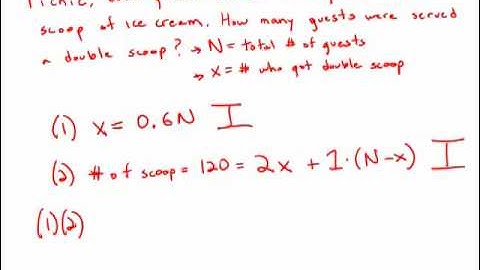 Picnic,
scoop of ice cream. How many guests were served
a double scoop? → N = total # of guests
→ x = # who got double scoop
(1) x = 0.6N I
(2) # of scoop = 120 = 2x + 1·(N-x) I
(1)(2)